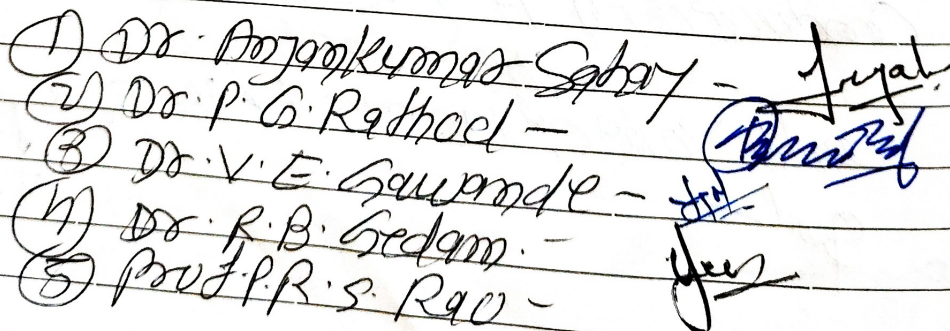 ① Dr. Anjankumar Sahay -
② Dr. P. G. Rathod -
③ Dr. V. E. Gawande -
④ Dr. R. B. Gedam. -
⑤ Prof. P. R. S. Rao -